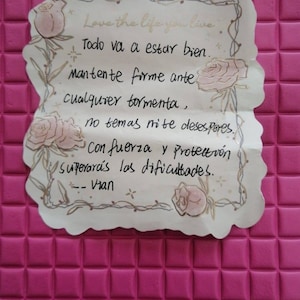 Love the life you live
Todo va a estar bien.
mantente firme ante
cualquier tormenta,
no temas ni te desesperes,
con fuerza y protección
superarás las dificultades.
-- Vian